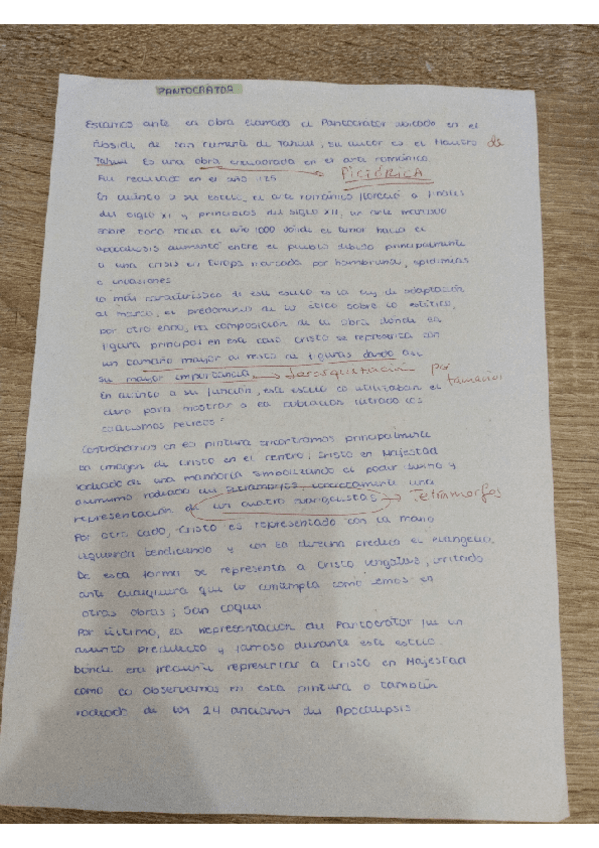 PANTOCRATOR
Estamos ante la obra llamada el Pantocrator ubicado en el
Ábside de San de Tahull, su autor es el Maestro de
Tahull Es una obra encuadrada en el arte románico. PICTÓRICA
Fue realizado en el año
En cuanto a su estilo, el arte románico floreció a finales
del siglo XI y principios del siglo XII, un arte
sobre todo hacia el año 1000 donde el temor hacia el
apocalipsis aumentó entre el pueblo debido principalmente
a una crisis en Europa marcada por hambrunas, epidemias
e invasiones
Lo más característico de este estilo es la ley de adaptación
al marco, el predominio de lo ético sobre lo estético,
por otro lado, la composición de la obra donde la
figura principal en este caso Cristo se representa con
un tamaño mayor al resto de figuras dando así
su mayor importancia. → Jerarquización por tamaños
En cuanto a su función, este estilo lo utilizaban el
clero para mostrar a la población iletrada los
Centrándonos en la pintura encontramos principalmente
la imagen de Cristo en el centro; Cristo en Majestad
rodeado de una mandorla simbolizando el poder divino y
asimismo rodeado del tetramorfos, concretamente una
representación de los cuatro evangelistas → Tetramorfos
Por otro lado, Cristo es representado con la mano
izquierda bendiciendo y con la derecha predica el evangelio.
De esta forma se representa a Cristo
ante cualquiera que lo contempla como vemos en
otras obras; San
Por último, la representación del Pantocrator fue un
asunto predilecto y famoso durante este estilo.
Donde era frecuente representar a Cristo en Majestad
como lo observamos en esta pintura o también
rodeado de los 24 ancianos del Apocalipsis